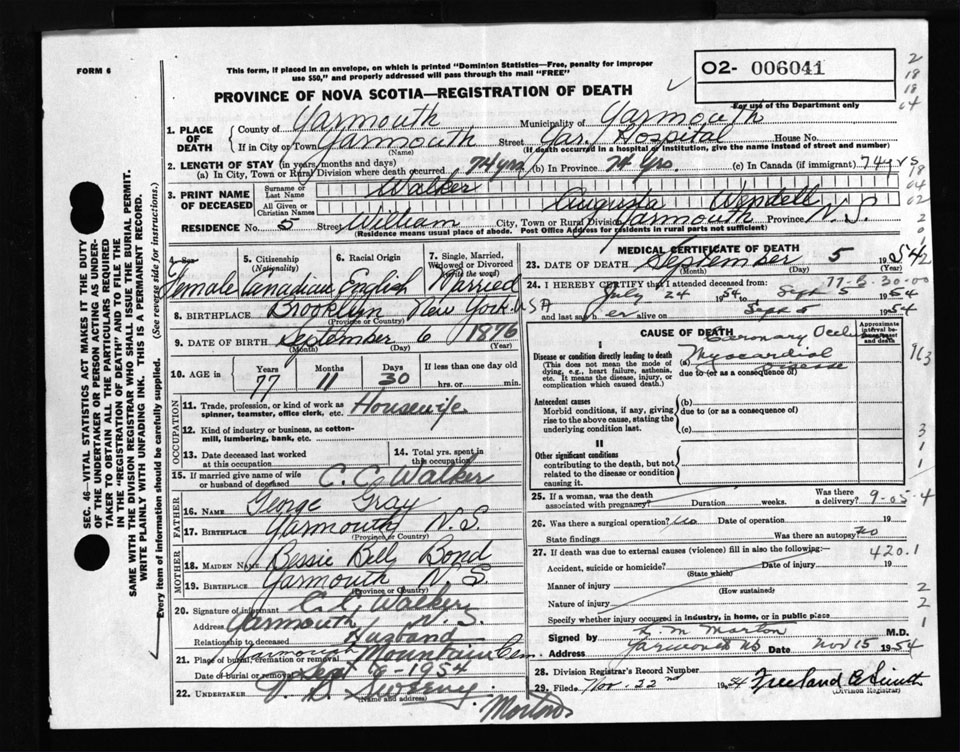 FORM 6
This form, if placed in an envelope, on which is printed "Dominion Statistics—Free, penalty for improper
use $50," and properly addressed will pass through the mail "FREE"
O2- 006041
For use of the Department only
PROVINCE OF NOVA SCOTIA—REGISTRATION OF DEATH
1. PLACE OF DEATH
County of Yarmouth Municipality of Yarmouth
If in City or Town Yarmouth Street Yar. Hospital House No.
(Name) (If death occurred in a hospital or institution, give the name instead of street and number)
2. LENGTH OF STAY (in years, months and days)
(a) In City, Town or Rural Division where death occurred 74 yrs (b) In Province 74 Yrs. (c) In Canada (if immigrant) 74 yrs
3. PRINT NAME OF DECEASED
Surname or Last Name Walker
All Given or Christian Names Augusta Wendell
RESIDENCE No. 5 Street William City, Town or Rural Division Yarmouth Province N.S.
(Residence means usual place of abode. Post Office Address for residents in rural parts not sufficient)
4. Sex Female
5. Citizenship (Nationality) Canadian
6. Racial Origin English
7. Single, Married, Widowed or Divorced (write the word) Married
8. BIRTHPLACE Brooklin New York U.S.A
(Province or Country)
9. DATE OF BIRTH September 6 1876
(Month) (Day) (Year)
10. AGE in Years 77 Months 11 Days 30 If less than one day old hrs. or min.
OCCUPATION
11. Trade, profession, or kind of work as spinner, teamster, office clerk, etc. Housewife
12. Kind of industry or business, as cotton-mill, lumbering, bank, etc.
13. Date deceased last worked at this occupation
14. Total yrs. spent in this occupation
15. If married give name of wife or husband of deceased C. C. Walker
FATHER
16. NAME George Gray
17. BIRTHPLACE Yarmouth N.S.
(Province or Country)
MOTHER
18. MAIDEN NAME Bessie Bell Bond
19. BIRTHPLACE Yarmouth N.S.
(Province or Country)
20. Signature of informant C. C. Walker
Address Yarmouth N.S.
Relationship to deceased Husband
21. Place of burial, cremation or removal Yarmouth Mountain Cem.
Date of burial or removal Sept 9 - 1954
22. UNDERTAKER V. S. Sweeny
(Name and address)
MEDICAL CERTIFICATE OF DEATH
23. DATE OF DEATH September 5 1954
(Month) (Day) (Year)
24. I HEREBY CERTIFY that I attended deceased from:
July 24 1954 to Sept 5 1954
and last saw her alive on Sept 5 1954
CAUSE OF DEATH
Approximate interval between onset and death
I
Disease or condition directly leading to death
(This does not mean the mode of dying, e.g., heart failure, asthenia, etc. It means the disease, injury, or complication which caused death.)
(a) Coronary Occl.
Myocardial Disease
due to (or as a consequence of)
Antecedent causes
Morbid conditions, if any, giving rise to the above cause, stating the underlying condition last.
(b)
due to (or as a consequence of)
(c)
II
Other significant conditions
contributing to the death, but not related to the disease or condition causing it.
25. If a woman, was the death associated with pregnancy? Duration weeks. Was there a delivery?
9-05-4
26. Was there a surgical operation? No Date of operation 19
State findings Was there an autopsy? No
27. If death was due to external causes (violence) fill in also the following:—
420.1
Accident, suicide or homicide? Date of injury 19
(State which)
Manner of injury
(How sustained)
Nature of injury
Specify whether injury occurred in industry, in home, or in public place
Signed by S. M. Morton M.D.
Address Yarmouth NS Nov 15 1954
28. Division Registrar's Record Number
29. Filed Nov. 22nd 1954 Freeland E Smith
(Division Registrar)
SEC. 46—VITAL STATISTICS ACT MAKES IT THE DUTY
OF THE UNDERTAKER OR PERSON ACTING AS UNDER-
TAKER TO OBTAIN ALL THE PARTICULARS REQUIRED
IN THE "REGISTRATION OF DEATH" AND TO FILE THE
SAME WITH THE DIVISION REGISTRAR WHO SHALL ISSUE THE BURIAL PERMIT.
WRITE PLAINLY WITH UNFADING INK. THIS IS A PERMANENT RECORD.
Every item of information should be carefully supplied. (See reverse side for instructions.)